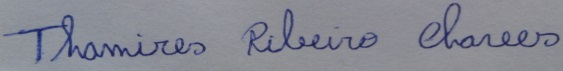 Thamires Ribeiro Charees